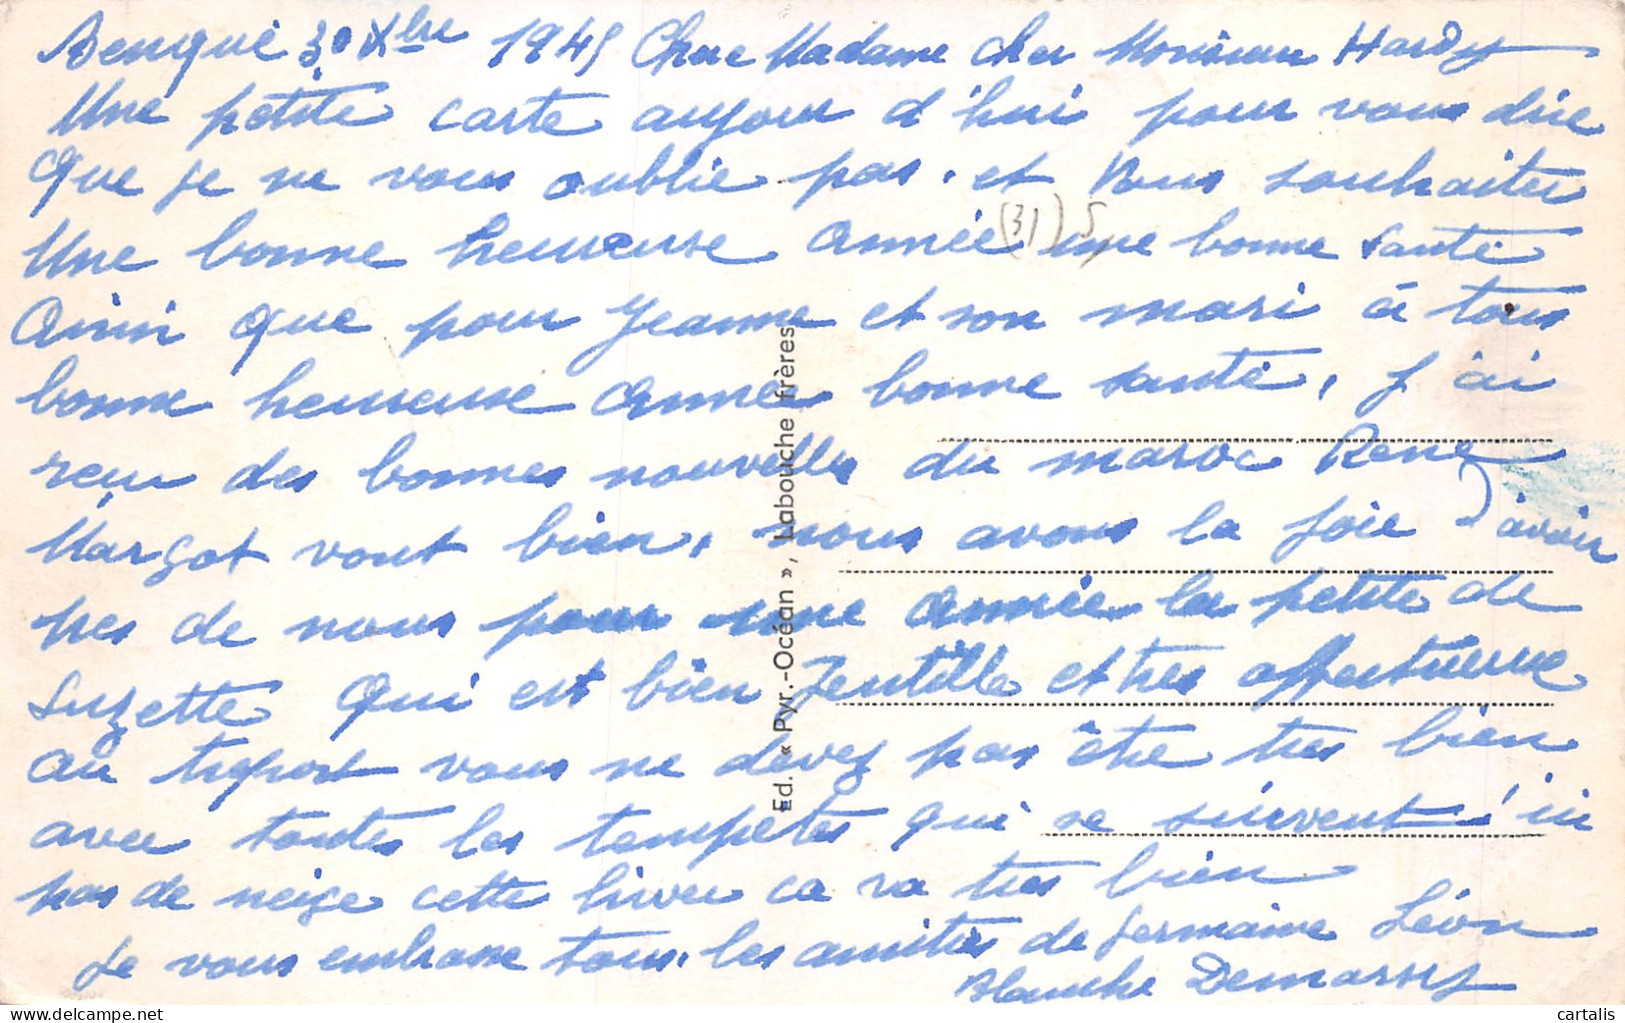 Benqué 30 Xbre 1945 Chere Madame cher Monsieur Hardy
Une petite carte aujour d'hui pour vous dire
que je ne vous oublie pas. et vous souhaiter
Une bonne heureuse année une bonne santé
(31) 5
Ainsi que pour Jeanne et son mari à tous
bonne heureuse année bonne santé, j'ai
reçu des bonnes nouvelles du maroc René
Margot vont bien, nous avons la joie d'avoir
pres de nous pour une année la petite de
Suzette qui est bien Jentille et tres affectueuse
au treport vous ne devez pas être tres bien
avec toutes les tempetes qui se suivent ici
pas de neige cette hiver ca va tres bien
Je vous embrasse tous. les amitiés de Germaine Léon
Blanche Demarsy
Ed. « Pyr.-Océan », Labouche frères
cartalis.com